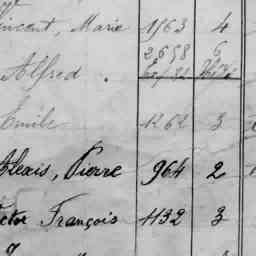 incent, Marie 1763 4
2658 6
Alfred .
Emile 1262 3
Alexis, Pierre 964 2
ctor François 1132 3